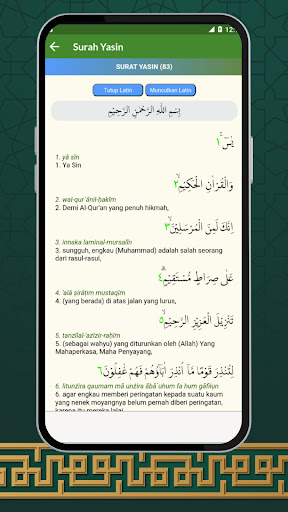 12:
Surah Yasin
SURAT YASIN (83)
Tutup Latin
Munculkan Latin
بِسْمِ اللّٰهِ الرَّحْمٰنِ الرَّحِيْمِ
يٰسۤ ۚ ١
1. yā sīn
1. Ya Sin
وَالْقُرْاٰنِ الْحَكِيْمِۙ ٢
2. wal-qur`ānil-ḥakīm
2. Demi Al-Qur'an yang penuh hikmah,
اِنَّكَ لَمِنَ الْمُرْسَلِيْنَۙ ٣
3. innaka laminal-mursalīn
3. sungguh, engkau (Muhammad) adalah salah seorang
dari rasul-rasul,
عَلٰى صِرَاطٍ مُّسْتَقِيْمٍۗ ٤
4. 'alā ṣirāṭim mustaqīm
4. (yang berada) di atas jalan yang lurus,
تَنْزِيْلَ الْعَزِيْزِ الرَّحِيْمِۙ ٥
5. tanzīlal-'azīzir-raḥīm
5. (sebagai wahyu) yang diturunkan oleh (Allah) Yang
Mahaperkasa, Maha Penyayang,
لِتُنْذِرَ قَوْمًا مَّآ اُنْذِرَ اٰبَاۤؤُهُمْ فَهُمْ غٰفِلُوْنَ ٦
6. litunżira qaumam mā unżira ābā`uhum fa hum gāfilụn
6. agar engkau memberi peringatan kepada suatu kaum
yang nenek moyangnya belum pernah diberi peringatan,
karena itu mereka lalai.